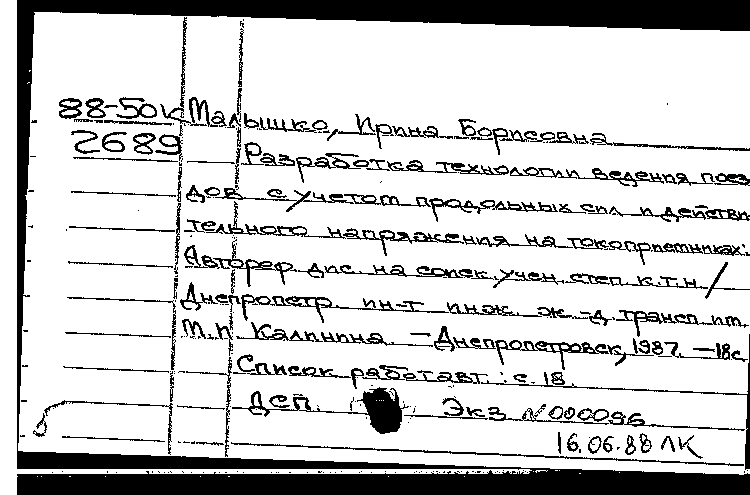 88-50к Малышко, Ирина Борисовна
2689 Разработка технологии ведения поез
дов с учетом продольных сил и действи
тельного напряжения на токоприемниках:
Автореф дис. на соиск. учен. степ к.т.н /
Днепропетр. ин-т инж. ж.-д. трансп им.
М.И. Калинина. – Днепропетровск, 1987. – 18с
Список работ авт.: с. 18.
ДСП. Экз №000096
16.06.88 ЛК